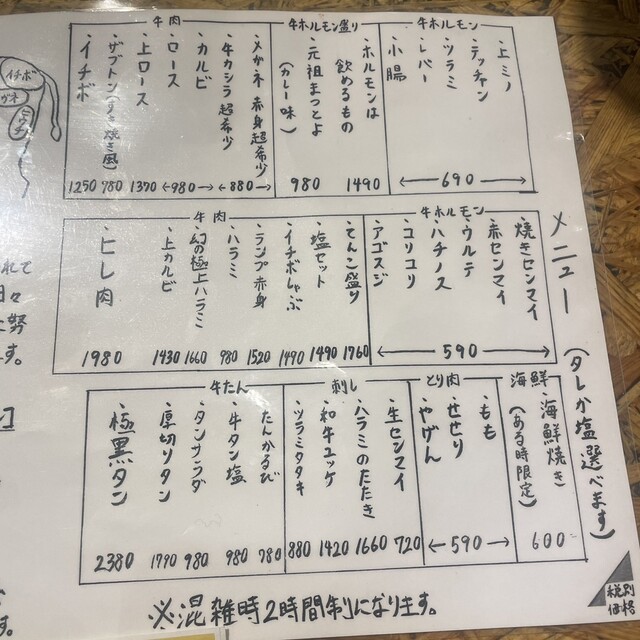 メニュー
(タレか塩選べます)
牛ホルモン
・上ミノ
・テッチャン
・ツラミ
・レバー
・小腸
690
牛ホルモン盛り
・ホルモンは飲めるもの
1490
・元祖まつとよ(カレー味)
980
牛肉
・メガネ 赤身 超希少
・牛カシラ 超希少
880
・カルビ
・ロース
980
・上ロース
1370
・ザブトン(すき焼き風)
780
・イチボ
1250
牛ホルモン
・焼きセンマイ
・赤センマイ
・ウルテ
・ハチノス
・コリコリ
・アゴスジ
590
牛肉
・てんこ盛り
1760
・塩セット
1490
・イチボしゃぶ
1490
・ランプ赤身
1520
・ハラミ
980
・幻の極上ハラミ
1660
・上カルビ
1430
・ヒレ肉
1980
海鮮
・海鮮焼き
(ある時限定)
600
とり肉
・もも
・せせり
・やげん
590
刺し
・生センマイ
720
・ハラミのたたき
1660
・和牛ユッケ
1420
・ツラミタタキ
880
牛たん
・たんかるび
780
・牛タン塩
980
・タンサラダ
980
・厚切りタン
1790
・極黒タン
2380
※混雑時2時間制になります。
税別
価格
イチボ